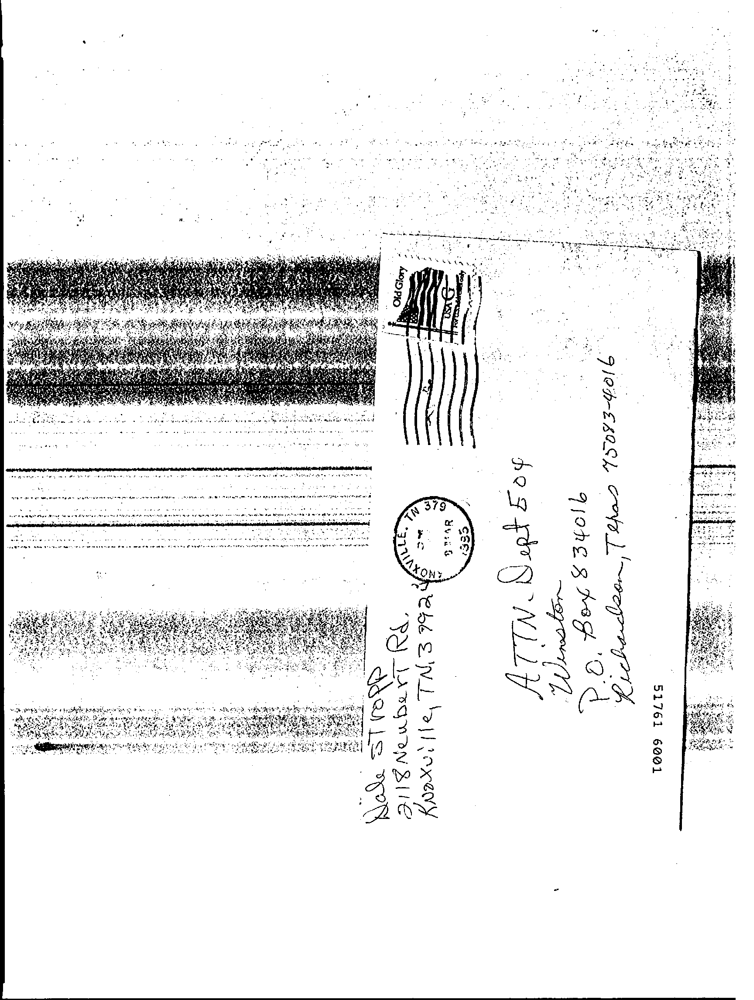 Dale Stropp
2118 Neubert Rd.
Knoxville, TN, 3792
KNOXVILLE, TN 379
PM
MAR
1995
Old Glory
USA G
ATTN. Dept 504
Winston
P.O. Box 834016
Richardson, Texas 75083-4016
51761 6001